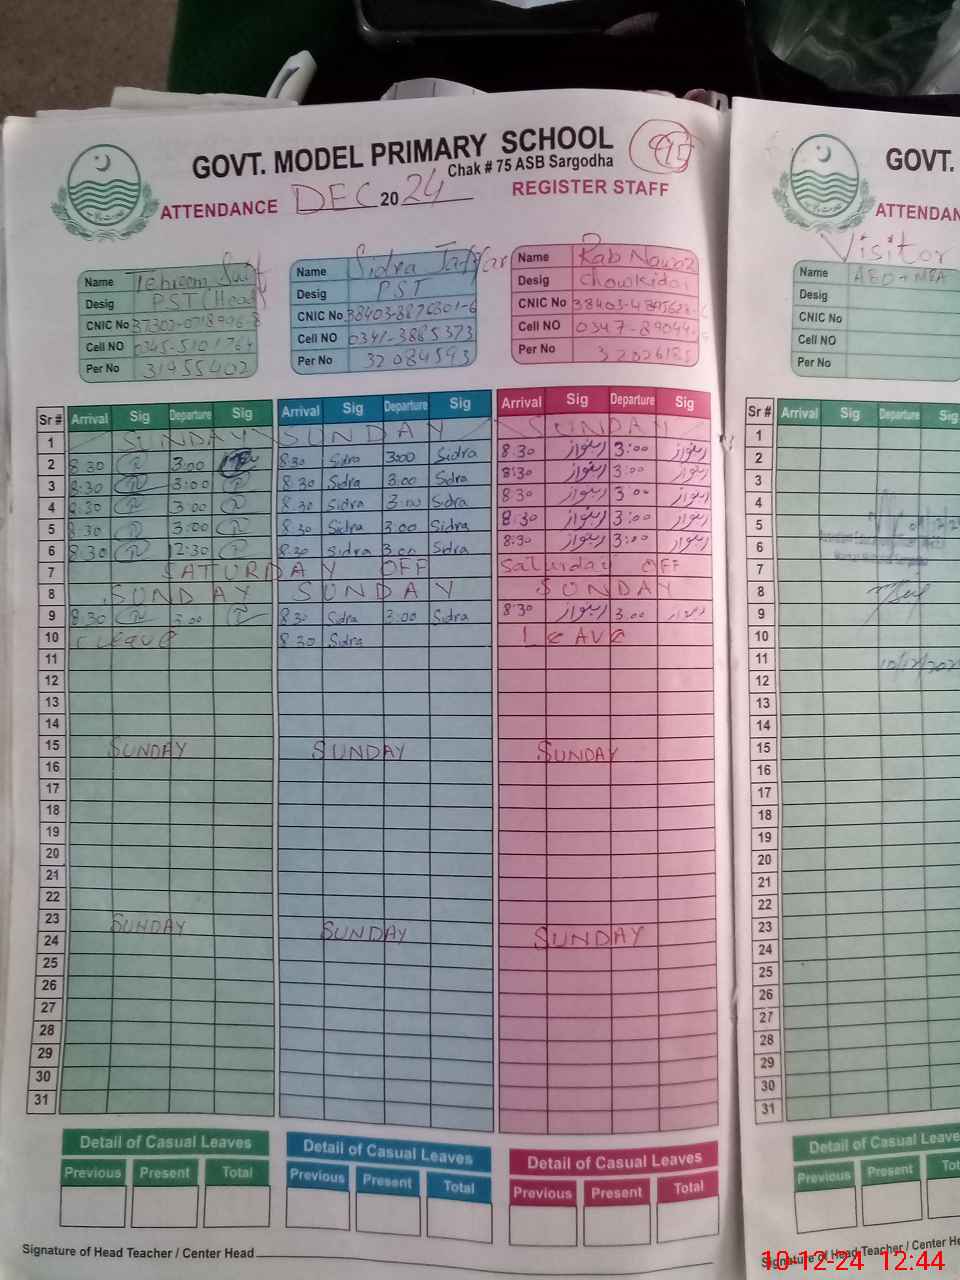 GOVT. MODEL PRIMARY SCHOOL
Chak # 75 ASB Sargodha
ATTENDANCE DEC 2024 REGISTER STAFF
Name Tehreem
Desig PST (Head)
CNIC No
Cell NO
Per No 31955402
Name Sidra Jaffar
Desig PST
CNIC No
Cell NO 0341-3885373
Per No 32084593
Name Rab Nawaz
Desig Chowkidar
CNIC No
Cell NO
Per No
Sr # Arrival Sig Departure Sig Arrival Sig Departure Sig Arrival Sig Departure Sig
1 SUNDAY SUNDAY SUNDAY
2 8.30 3:00 8.30 Sidra 3:00 Sidra 8:30 ربنواز 3:00 ربنواز
3 8.30 3:00 8.30 Sidra 3:00 Sidra 8:30 ربنواز 3:00 ربنواز
4 8.30 3:00 8.30 Sidra 3:00 Sidra 8:30 ربنواز 3:00 ربنواز
5 8.30 3:00 8.30 Sidra 3:00 Sidra 8:30 ربنواز 3:00 ربنواز
6 8.30 12:30 8.30 Sidra 3:00 Sidra 8:30 ربنواز 3:00 ربنواز
7 SATURDAY OFF Saturday OFF
8 SUNDAY SUNDAY SUNDAY
9 8.30 3:00 8.30 Sidra 3:00 Sidra 8:30 ربنواز 3:00 ربنواز
10 Leave 8.30 Sidra LEAVE
11
12
13
14
15 SUNDAY SUNDAY SUNDAY
16
17
18
19
20
21
22
23 SUNDAY SUNDAY SUNDAY
24
25
26
27
28
29
30
31
Detail of Casual Leaves Detail of Casual Leaves Detail of Casual Leaves
Previous Present Total Previous Present Total Previous Present Total
Signature of Head Teacher / Center Head
GOVT.
ATTENDAN
Visitor
Name AEO + MEA
Desig
CNIC No
Cell NO
Per No
Sr # Arrival Sig Departure Sig
1
2
3
4
5
6
7
8
9
10
11 10/12/202
12
13
14
15
16
17
18
19
20
21
22
23
24
25
26
27
28
29
30
31
Detail of Casual Leave
Previous Present Tot
Signature of Head Teacher / Center He
10-12-24 12:44